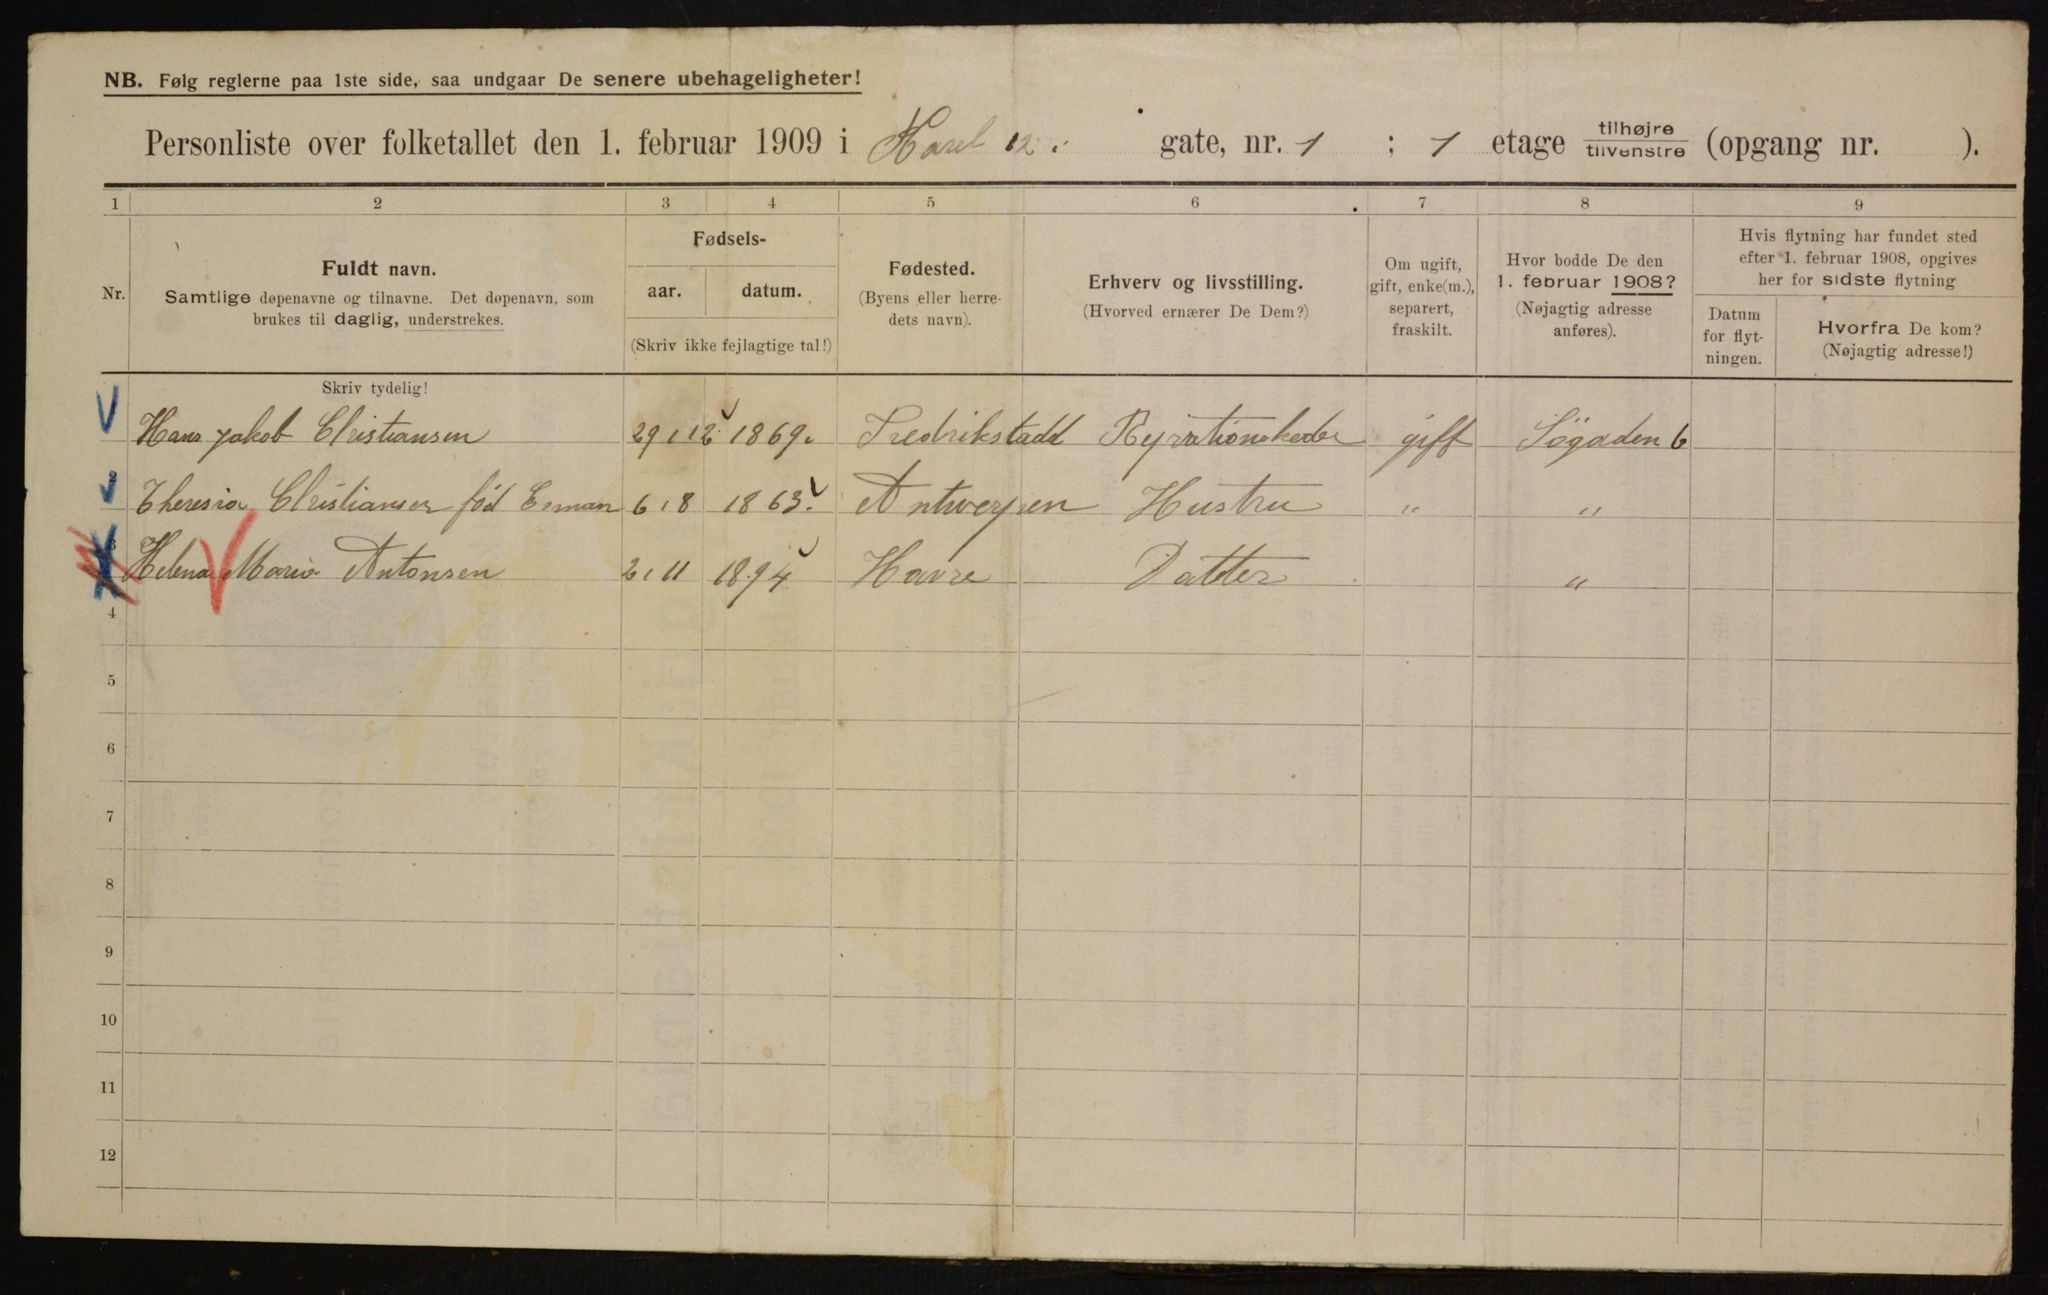 NB. Følg reglerne paa 1ste side, saa undgaar De senere ubehageligheter!
Personliste over folketallet den 1. februar 1909 i Karl 12. gate, nr. 1 ; 1 etage tilhøjre tilvenstre (opgang nr. ).
1 2 3 4 5 6 7 8 9
Nr.
Fuldt navn.
Samtlige døpenavne og tilnavne. Det døpenavn, som
brukes til daglig, understrekes.
Fødsels-
aar. datum.
(Skriv ikke fejlagtige tal!)
Fødested.
(Byens eller herre-
dets navn).
Erhverv og livsstilling.
(Hvorved ernærer De Dem?)
Om ugift,
gift, enke(m.),
separert,
fraskilt.
Hvor bodde De den
1. februar 1908?
(Nøjagtig adresse
anføres).
Hvis flytning har fundet sted
efter 1. februar 1908, opgives
her for sidste flytning
Datum
for flyt-
ningen.
Hvorfra De kom?
(Nøjagtig adresse!)
Skriv tydelig!
Hans Jakob Christiansen 29 . 12 1869. Fredrikstadd gift Søgaden 6
2 Theresia Christiansen fød 6 . 8 1863. Antwerpen Hustru " "
3 Helena Maria Antonsen 2 . 11 1894 Havre Datter "
4
5
6
7
8
9
10
11
12